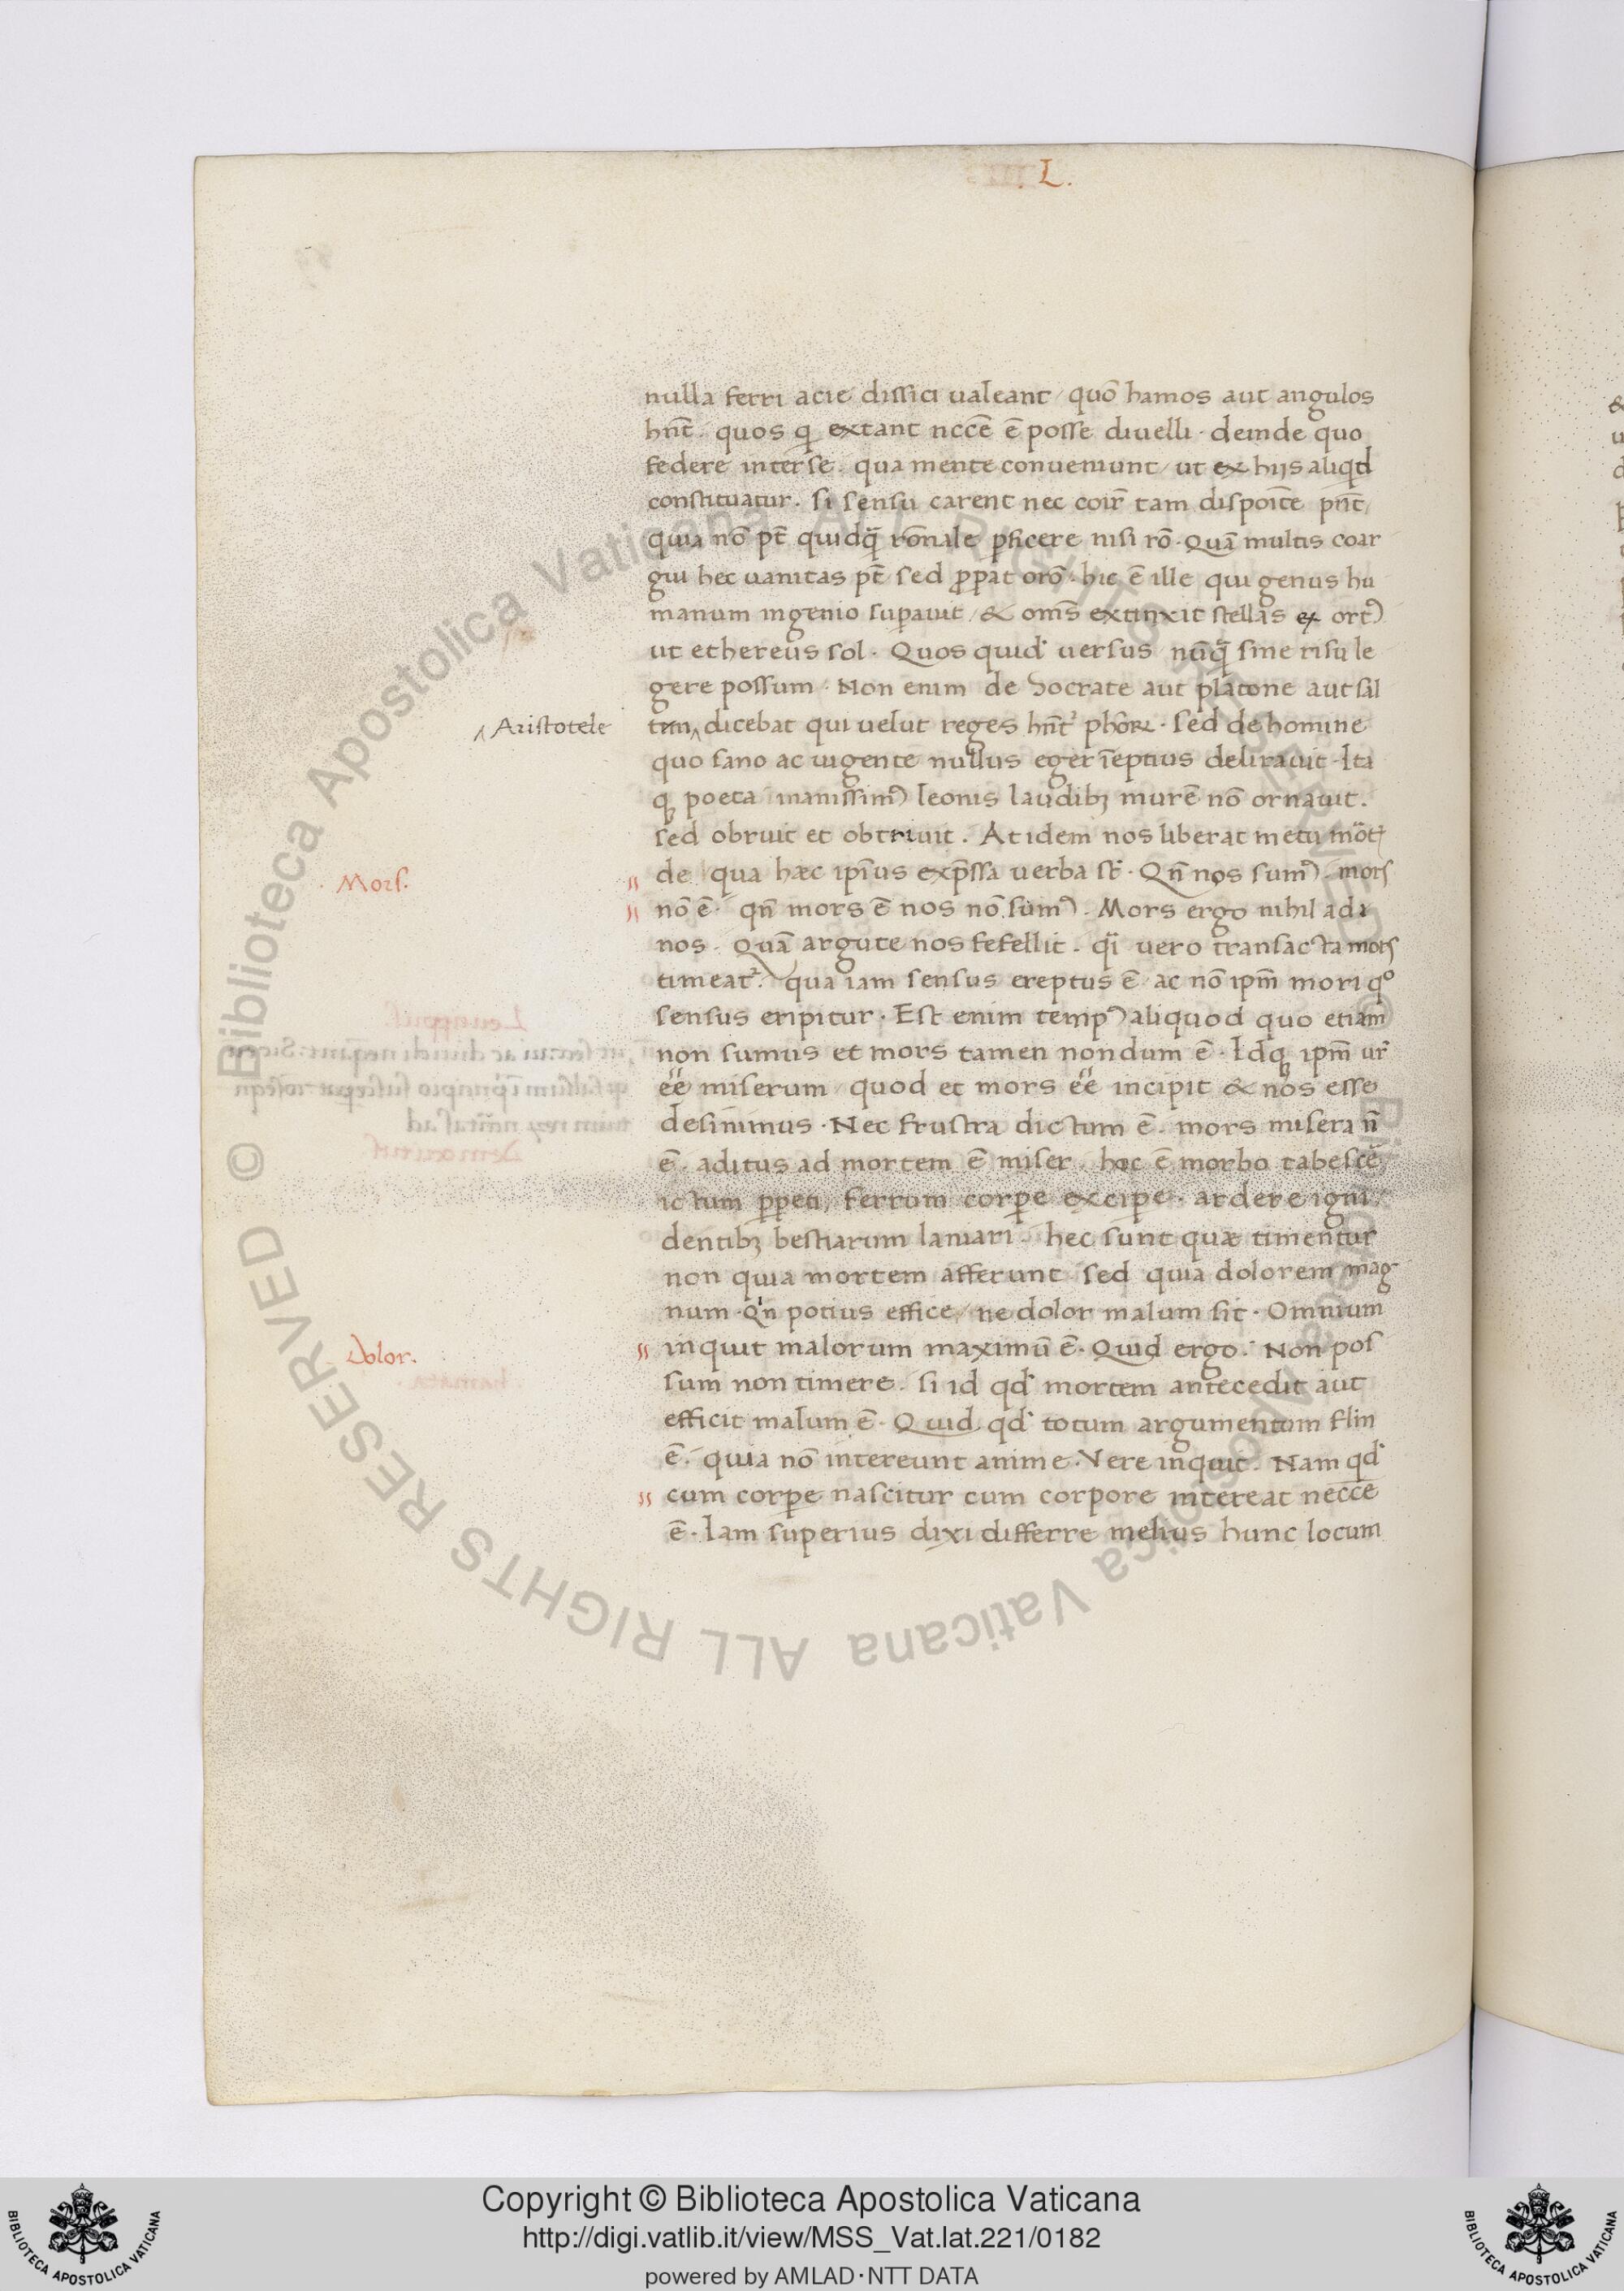 L.
nulla ferri acie dissici ualeant / quō hamos aut angulos
hn̄t. quos q̨ extant nccē ē posse diuelli · deinde quo
federe inter se. qua mente conueniunt / ut ex hiis aliqd
constituatur. si sensu carent nec coir̄ tam dispoīte pn̄t
quia nō pt̄ quidq̄ rōnale ꝑficere nisi rō · Quā multis coar
gui hec uanitas pt̄ / sed ꝓpat orō · hic ē ille qui genus hu
manum ingenio suꝑauit / & om̄s extinxit stellas ex ortꝰ
ut ethereus sol · Quos quid̄ uersus nūq̄ sine risu le
gere possum · Non enim de Socrate aut platone aut sal
Aristotele
tem dicebat qui uelut reges hn̄t᷑ ph̄oꝝ · sed de homine
quo sano ac uigente nullus eger īeptius delirauit · Ita
qꝫ poeta inanissimꝰ leonis laudibꝫ murē nō ornauit.
sed obruit et obtriuit. At idem nos liberat metu mōt
Mors.
de qua hæc ipīus exp̄ssa uerba st̄ · Qn̄ nos sumꝰ. mors
nō ē · qn̄ mors ē nos nō sumꝰ. Mors ergo nihil ad
nos. Quā argute nos fefellit. q̄i uero transacta mors
timeat᷑. qua iam sensus ereptus ē · ac nō ipm̄ mori qͦ
sensus eripitur · Est enim tempꝰ aliquod quo etiam
non sumus et mors tamen nondum ē · Idqꝫ ipm̄ ur̄
ēē miserum / quod et mors ēē incipit & nos esse
desinimus · Nec frustra dictum ē. mors misera n̄
ē. aditus ad mortem ē miser. hoc ē morbo tabescē
ictum ꝑpeti, ferrum corꝑe exciꝑe · ardere igni
dentibꝫ bestiarum laniari. hec sunt quæ timentur
non quia mortem afferunt sed quia dolorem mag
num · Qīn potius effice / ne dolor malum sit · Omnium
Dolor.
inquit malorum maximū ē · Quid ergo. Non pos
sum non timere. si id qd̄ mortem antecedit aut
efficit malum ē · Quid qd̄ totum argumentum flm
ē · quia nō intereunt anime · Vere inquit. Nam qd̄
cum corꝑe nascitur cum corpore intereat neccē
ē · Iam superius dixi differre melius hunc locum
Copyright © Biblioteca Apostolica Vaticana
http://digi.vatlib.it/view/MSS_Vat.lat.221/0182
powered by AMLAD·NTT DATA
BIBLIOTECA APOSTOLICA VATICANA
BIBLIOTECA APOSTOLICA VATICANA
Biblioteca Apostolica Vaticana ALL RIGHTS RESERVED ©